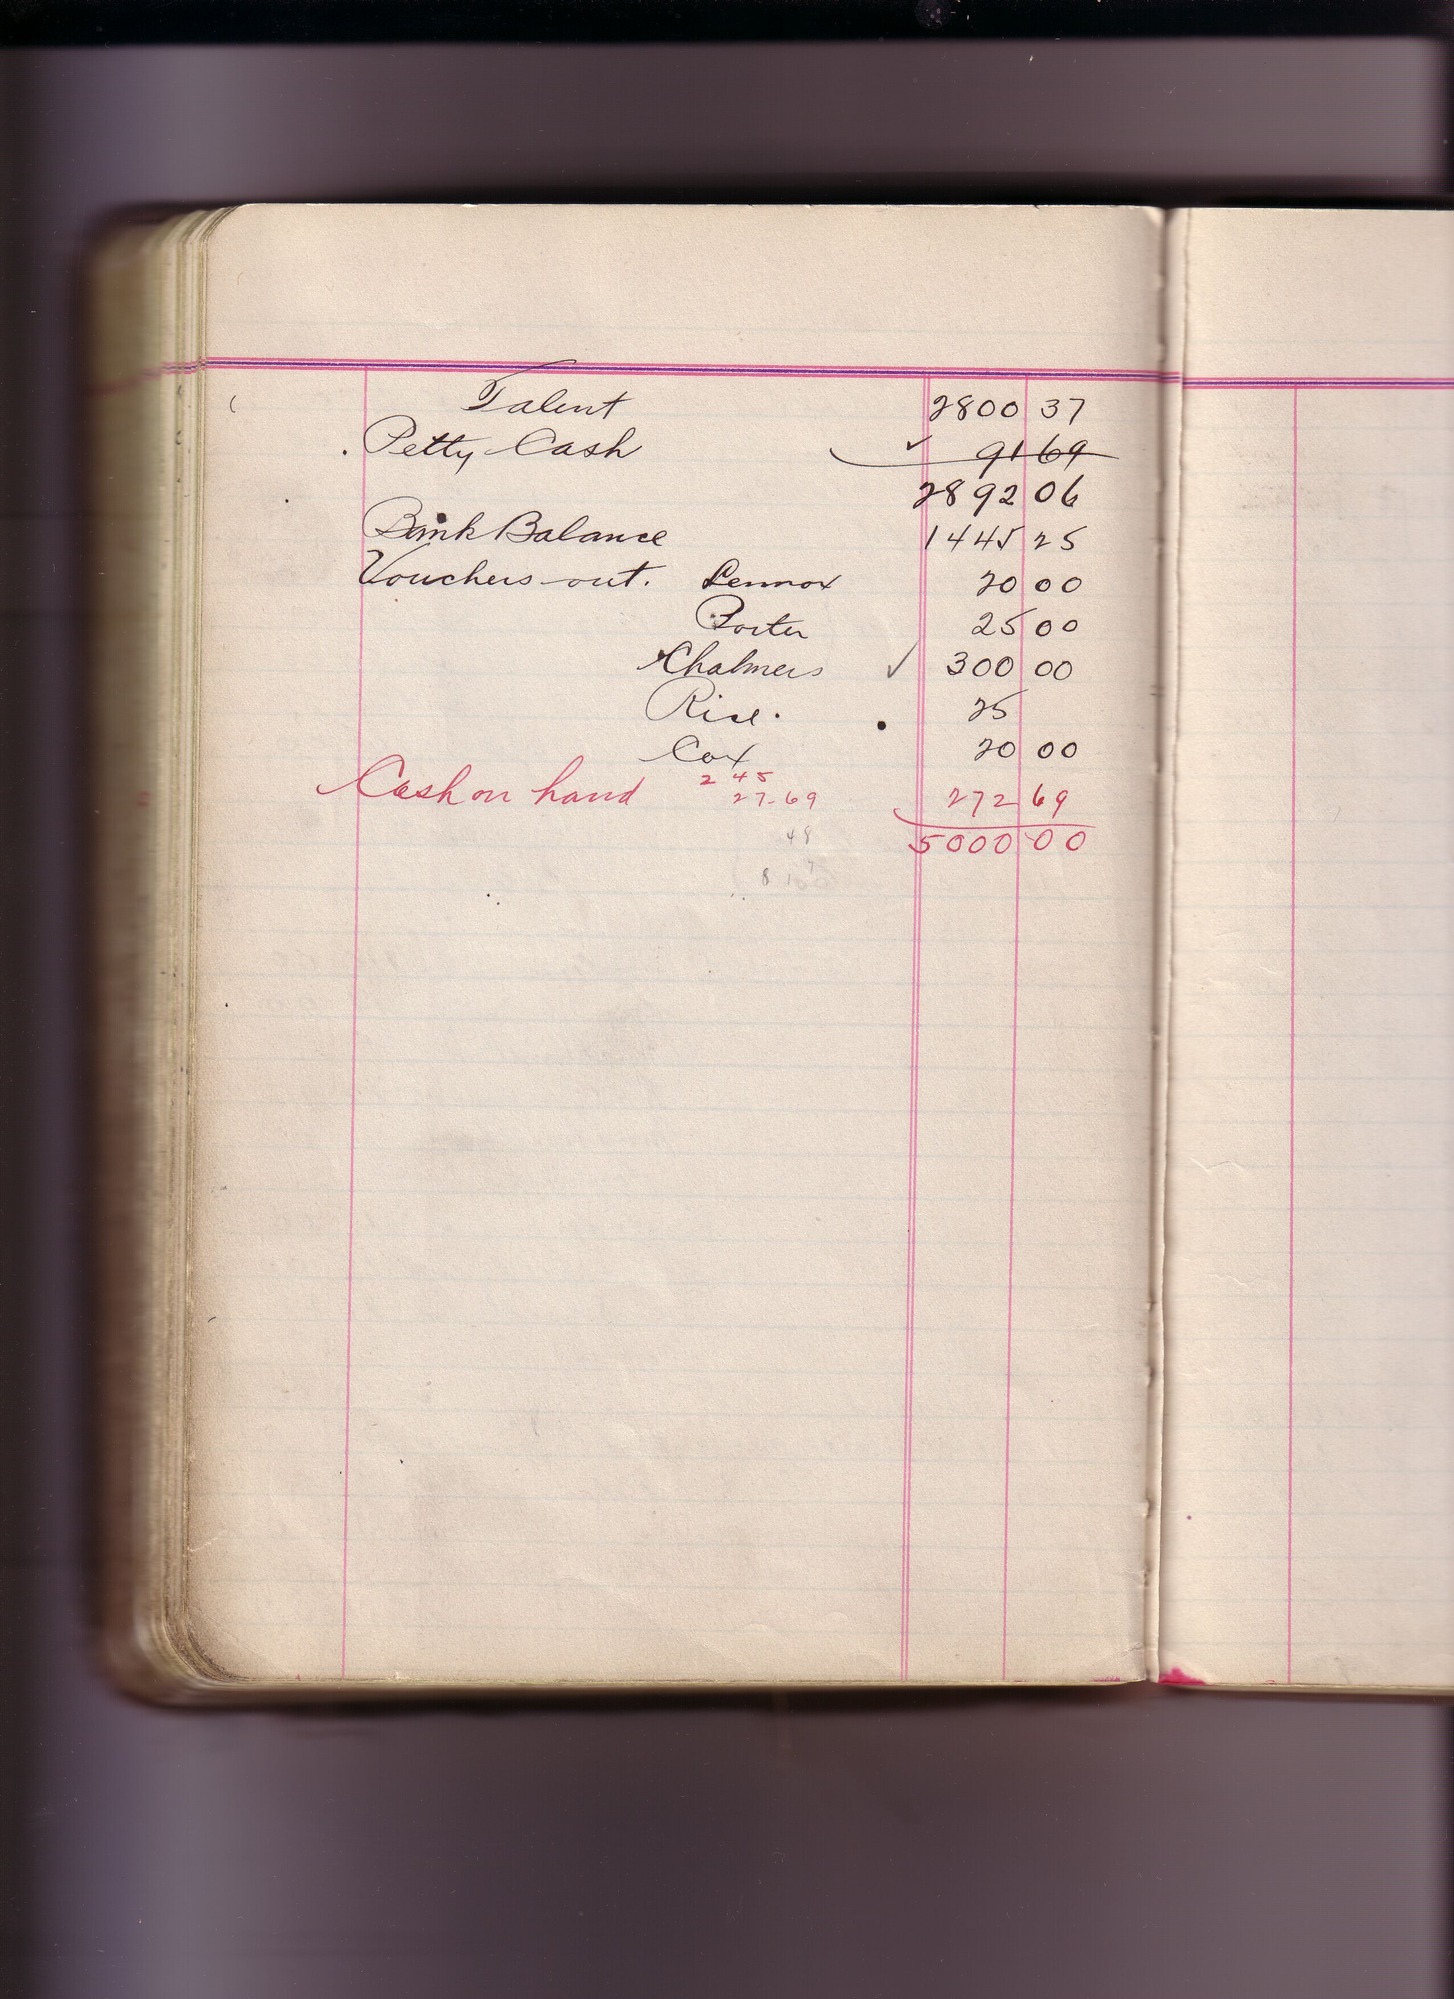 Talent 2800 37
Petty Cash ✓ 91 69
2892 06
Bank Balance 1445 25
Vouchers out. Lennox 20 00
Porter 25 00
Chalmers ✓ 300 00
Rice. 25
Cox 20 00
2 45
Cash on hand 27.69 272 69
5000 00
48
8 1 7